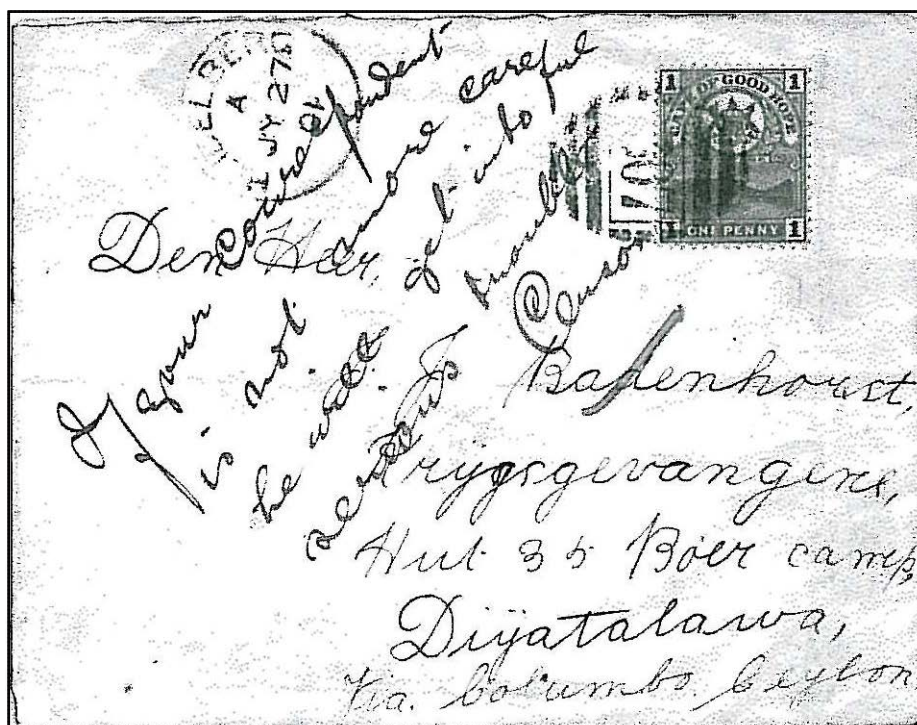 ELBERG
A
JY 27
01
1 CAPE OF GOOD HOPE 1
1 ONE PENNY 1
If your correspondent
is not more careful
he will get into
serious trouble
Censor
Den Heer,
J. Badenhorst,
Krijgsgevangene,
Hut 35 Boer camp,
Diyatalawa,
Via. Columbo. Ceylon